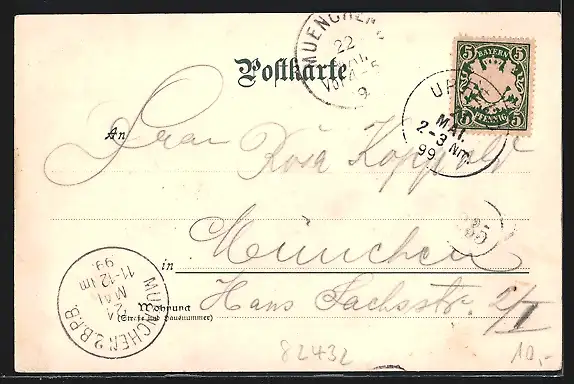 MUENCHEN
22
MAI
VOR.4-5
9
Postkarte
5 BAYERN 5
5 PFENNIG 5
MAI.
2-3 Nm.
99
An Frau Rosa
35
in München
MUENCHEN 2.B.P.B.
21
MAI
11-12 Vm
99
Wohnung
(Straße und Hausnummer)
Hans Sachsstr. 2/I
82432
10,-